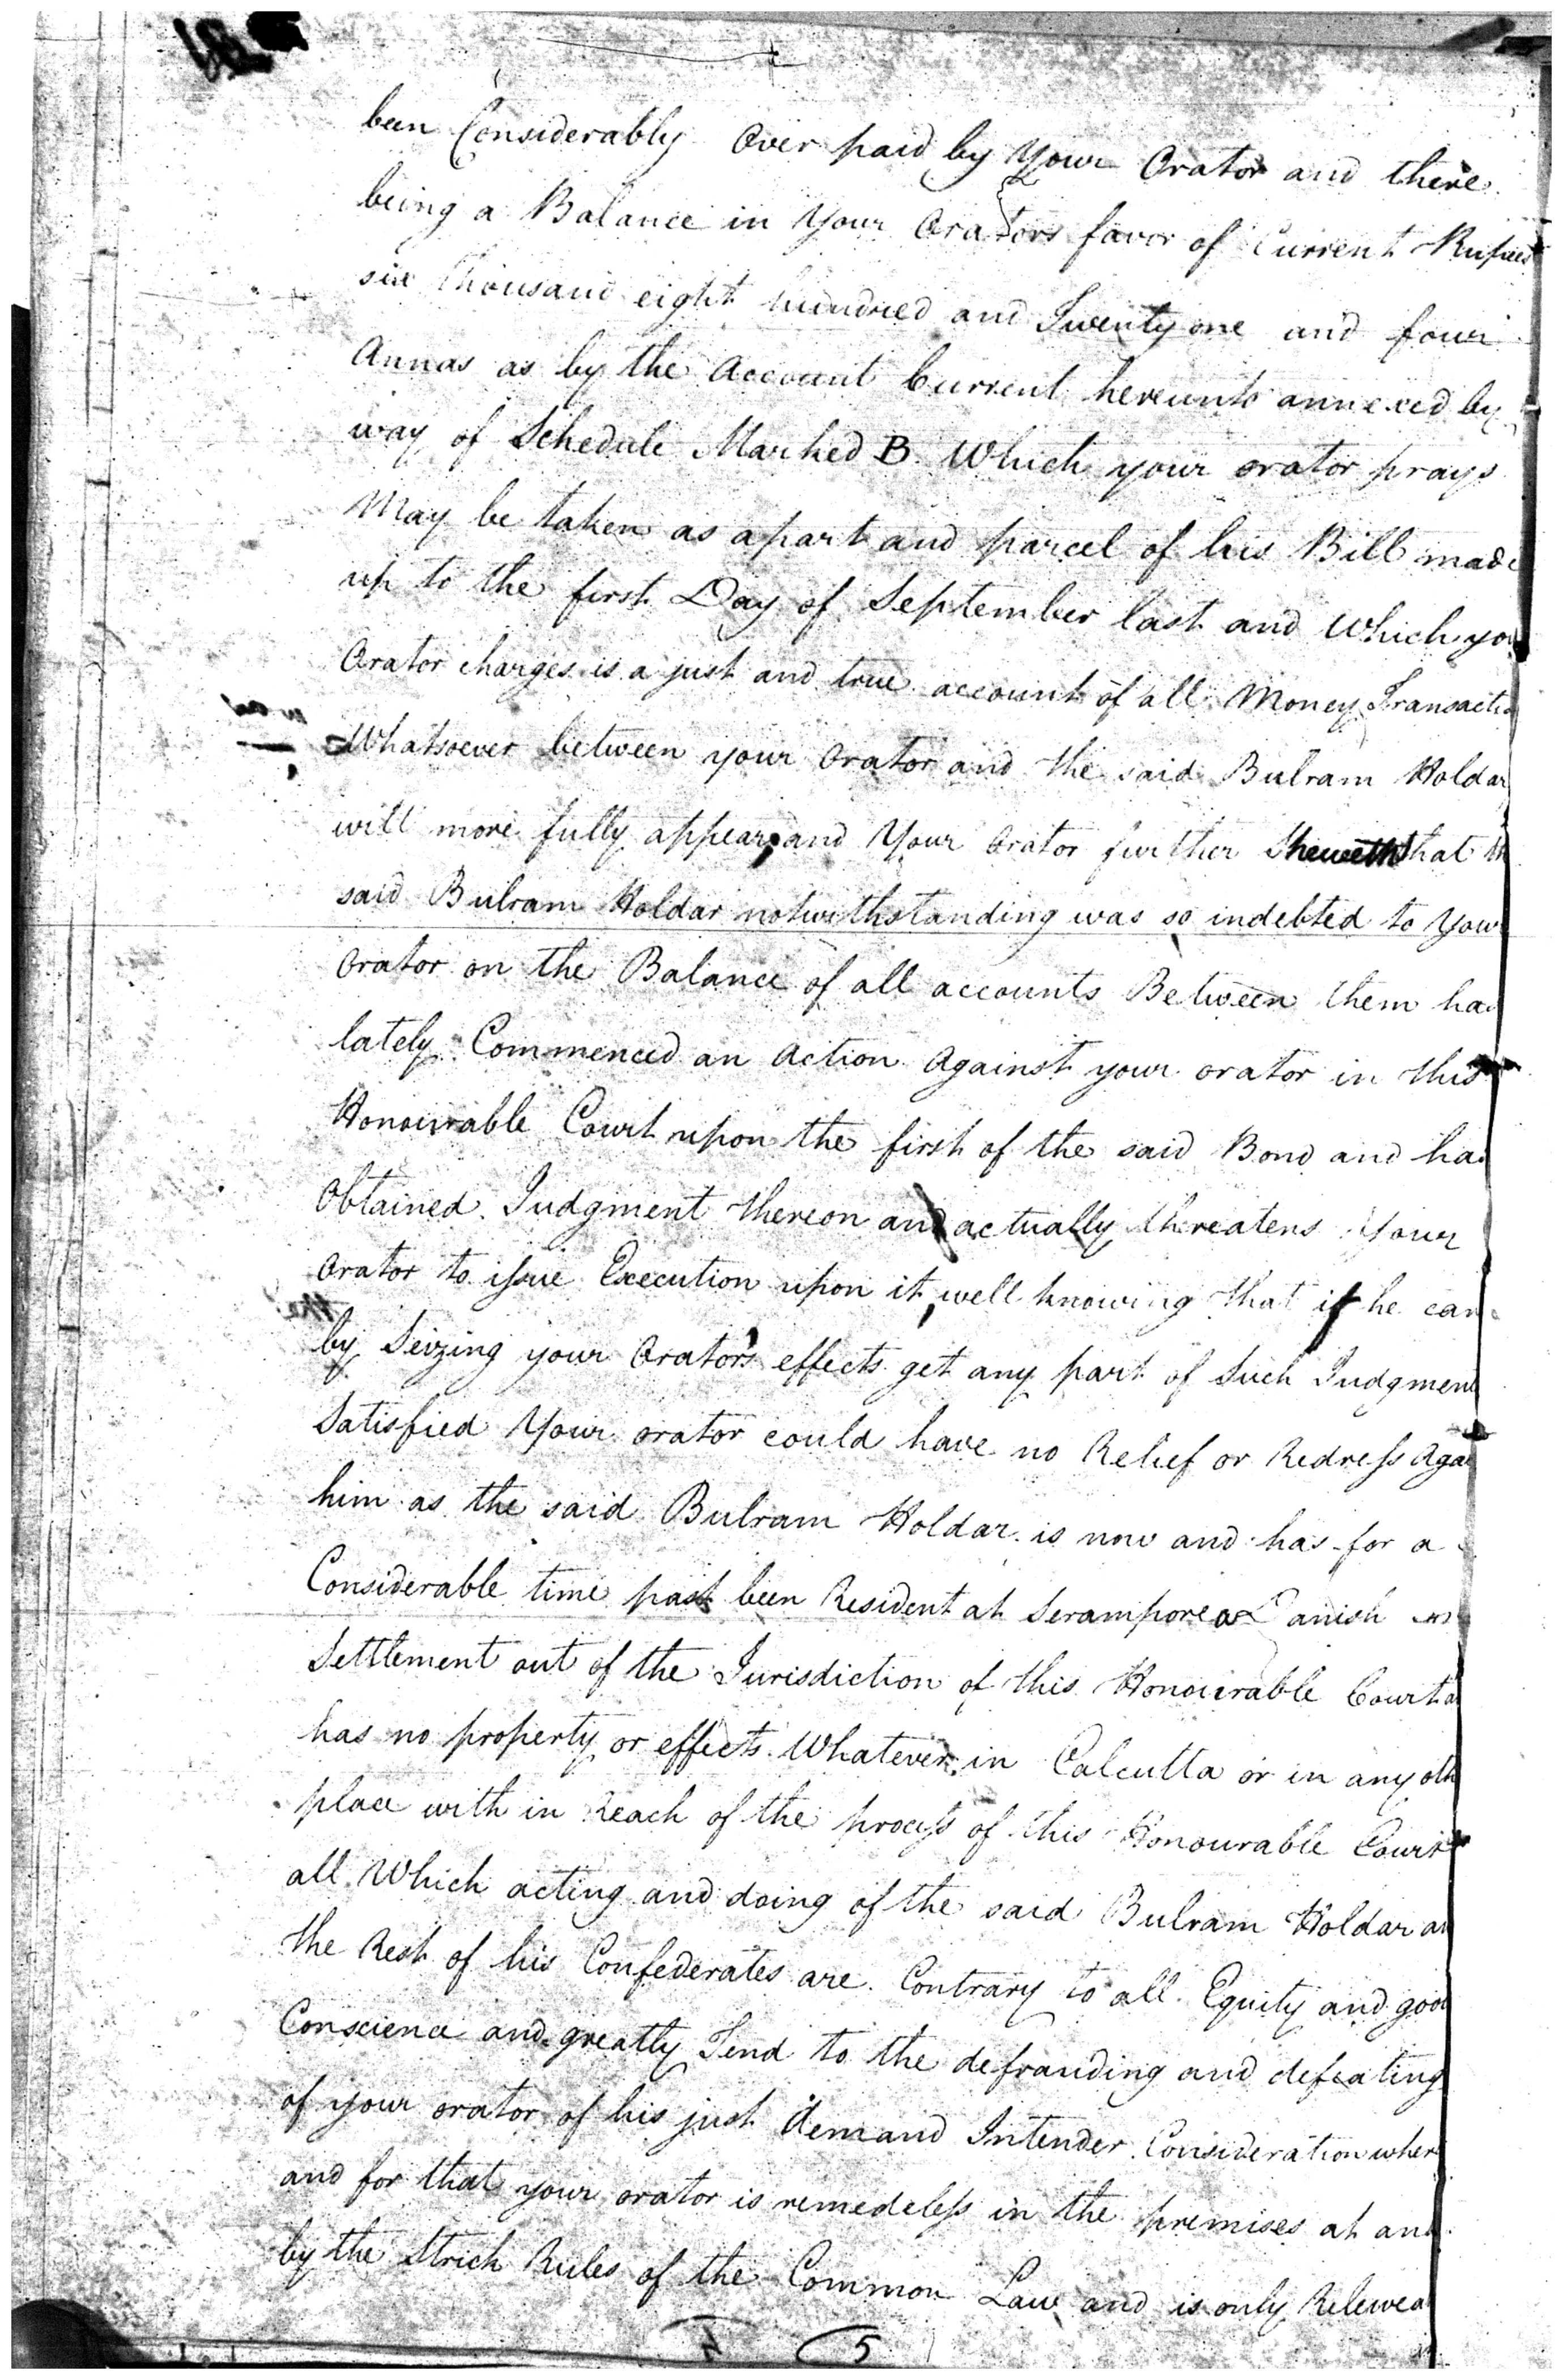 been Considerably Over paid by Your Orator and there
being a Balance in Your Orators favor of Current Rupees
six Thousand eight hundred and Twenty one and four
Annas as by the Account Current hereunto annexed by
way of Schedule Marked B Which your orator prays
May be taken as apart and parcel of his Bill made
up to the first Day of September last and Which you
Orator charges is a just and true account of all Money Transactio
Whatsoever between your Orator and the said Bulram Holdar
will more fully appear, and Your Orator further Sheweth that th
said Bulram Holdar notwithstanding was so indebted to Your
Orator on the Balance of all accounts Between them has
lately Commenced an Action Against your orator in this
Honourable Court upon the first of the said Bond and has
Obtained Judgment thereon and actually threatens Your
Orator to issue Execution upon it, well knowing that if he can
by Seizing your Orator's effects get any part of Such Judgment
Satisfied Your orator could have no Relief or Redress Aga
him as the said Bulram Holdar is now and has for a
Considerable time past been Resident at Serampore a Danish
Settlement out of the Jurisdiction of this Honourable Court a
has no property or effects Whatever in Calcutta or in any oth
place with in Reach of the process of this Honourable Court
all Which acting and doing of the said Bulram Holdar an
the Rest of his Confederates are Contrary to all Equity and good
Conscience and greatly Tend to the defrauding and defeating
of your orator of his just demand Intender Consideration wher
and for that your orator is remedeless in the premises at and
by the Strick Rules of the Common Law and is only Releivea
5